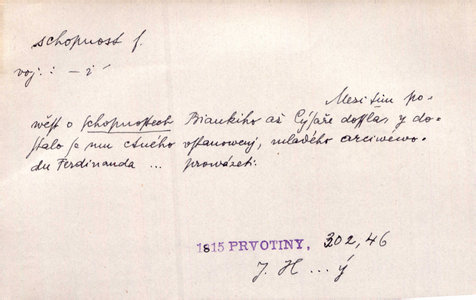 schopnost f.
voj.: – í
Mezi tím po-
wěst o schopnostech Biankiho až Cýsaře dossla, y do-
stalo se mu ctného vstanowenj, mladého arciwéwo-
du Ferdinanda ... prowázeti.
1815 PRVOTINY, 302, 46
J. H ... ý